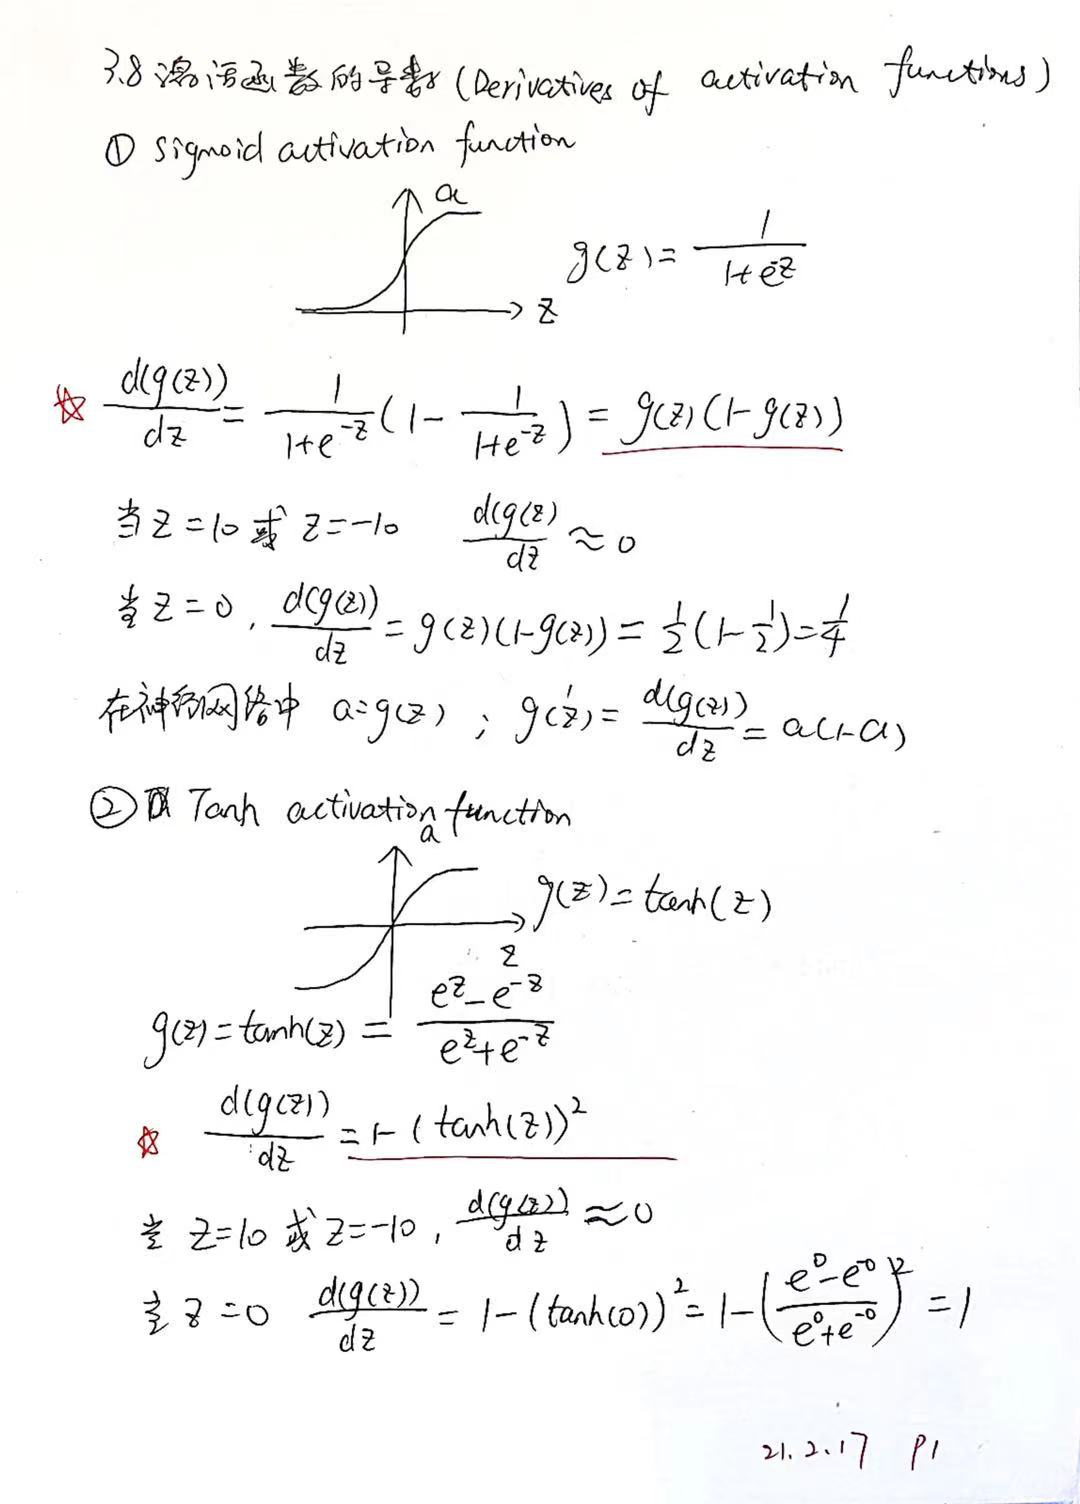 3.8 激活函数的导数 (Derivatives of activation functions)
① sigmoid activation function
a
g(z) = 1/(1+e^-z)
z
☆ d(g(z))/dz = 1/(1+e^-z) (1 - 1/(1+e^-z)) = g(z)(1-g(z))
当 z=10 或 z=-10 d(g(z)/dz ≈ 0
当 z=0, d(g(z))/dz = g(z)(1-g(z)) = 1/2(1-1/2) = 1/4
在神经网络中 a=g(z); g(z)' = d(g(z))/dz = a(1-a)
② Tanh activation function
a
g(z)=tanh(z)
z
g(z)=tanh(z) = (e^z - e^-z)/(e^z + e^-z)
☆ d(g(z))/dz = 1-(tanh(z))^2
当 z=10 或 z=-10, d(g(z))/dz ≈ 0
当 z=0 d(g(z))/dz = 1-(tanh(0))^2 = 1-((e^0 - e^-0)/(e^0 + e^-0))^2 = 1
21.2.17 P1